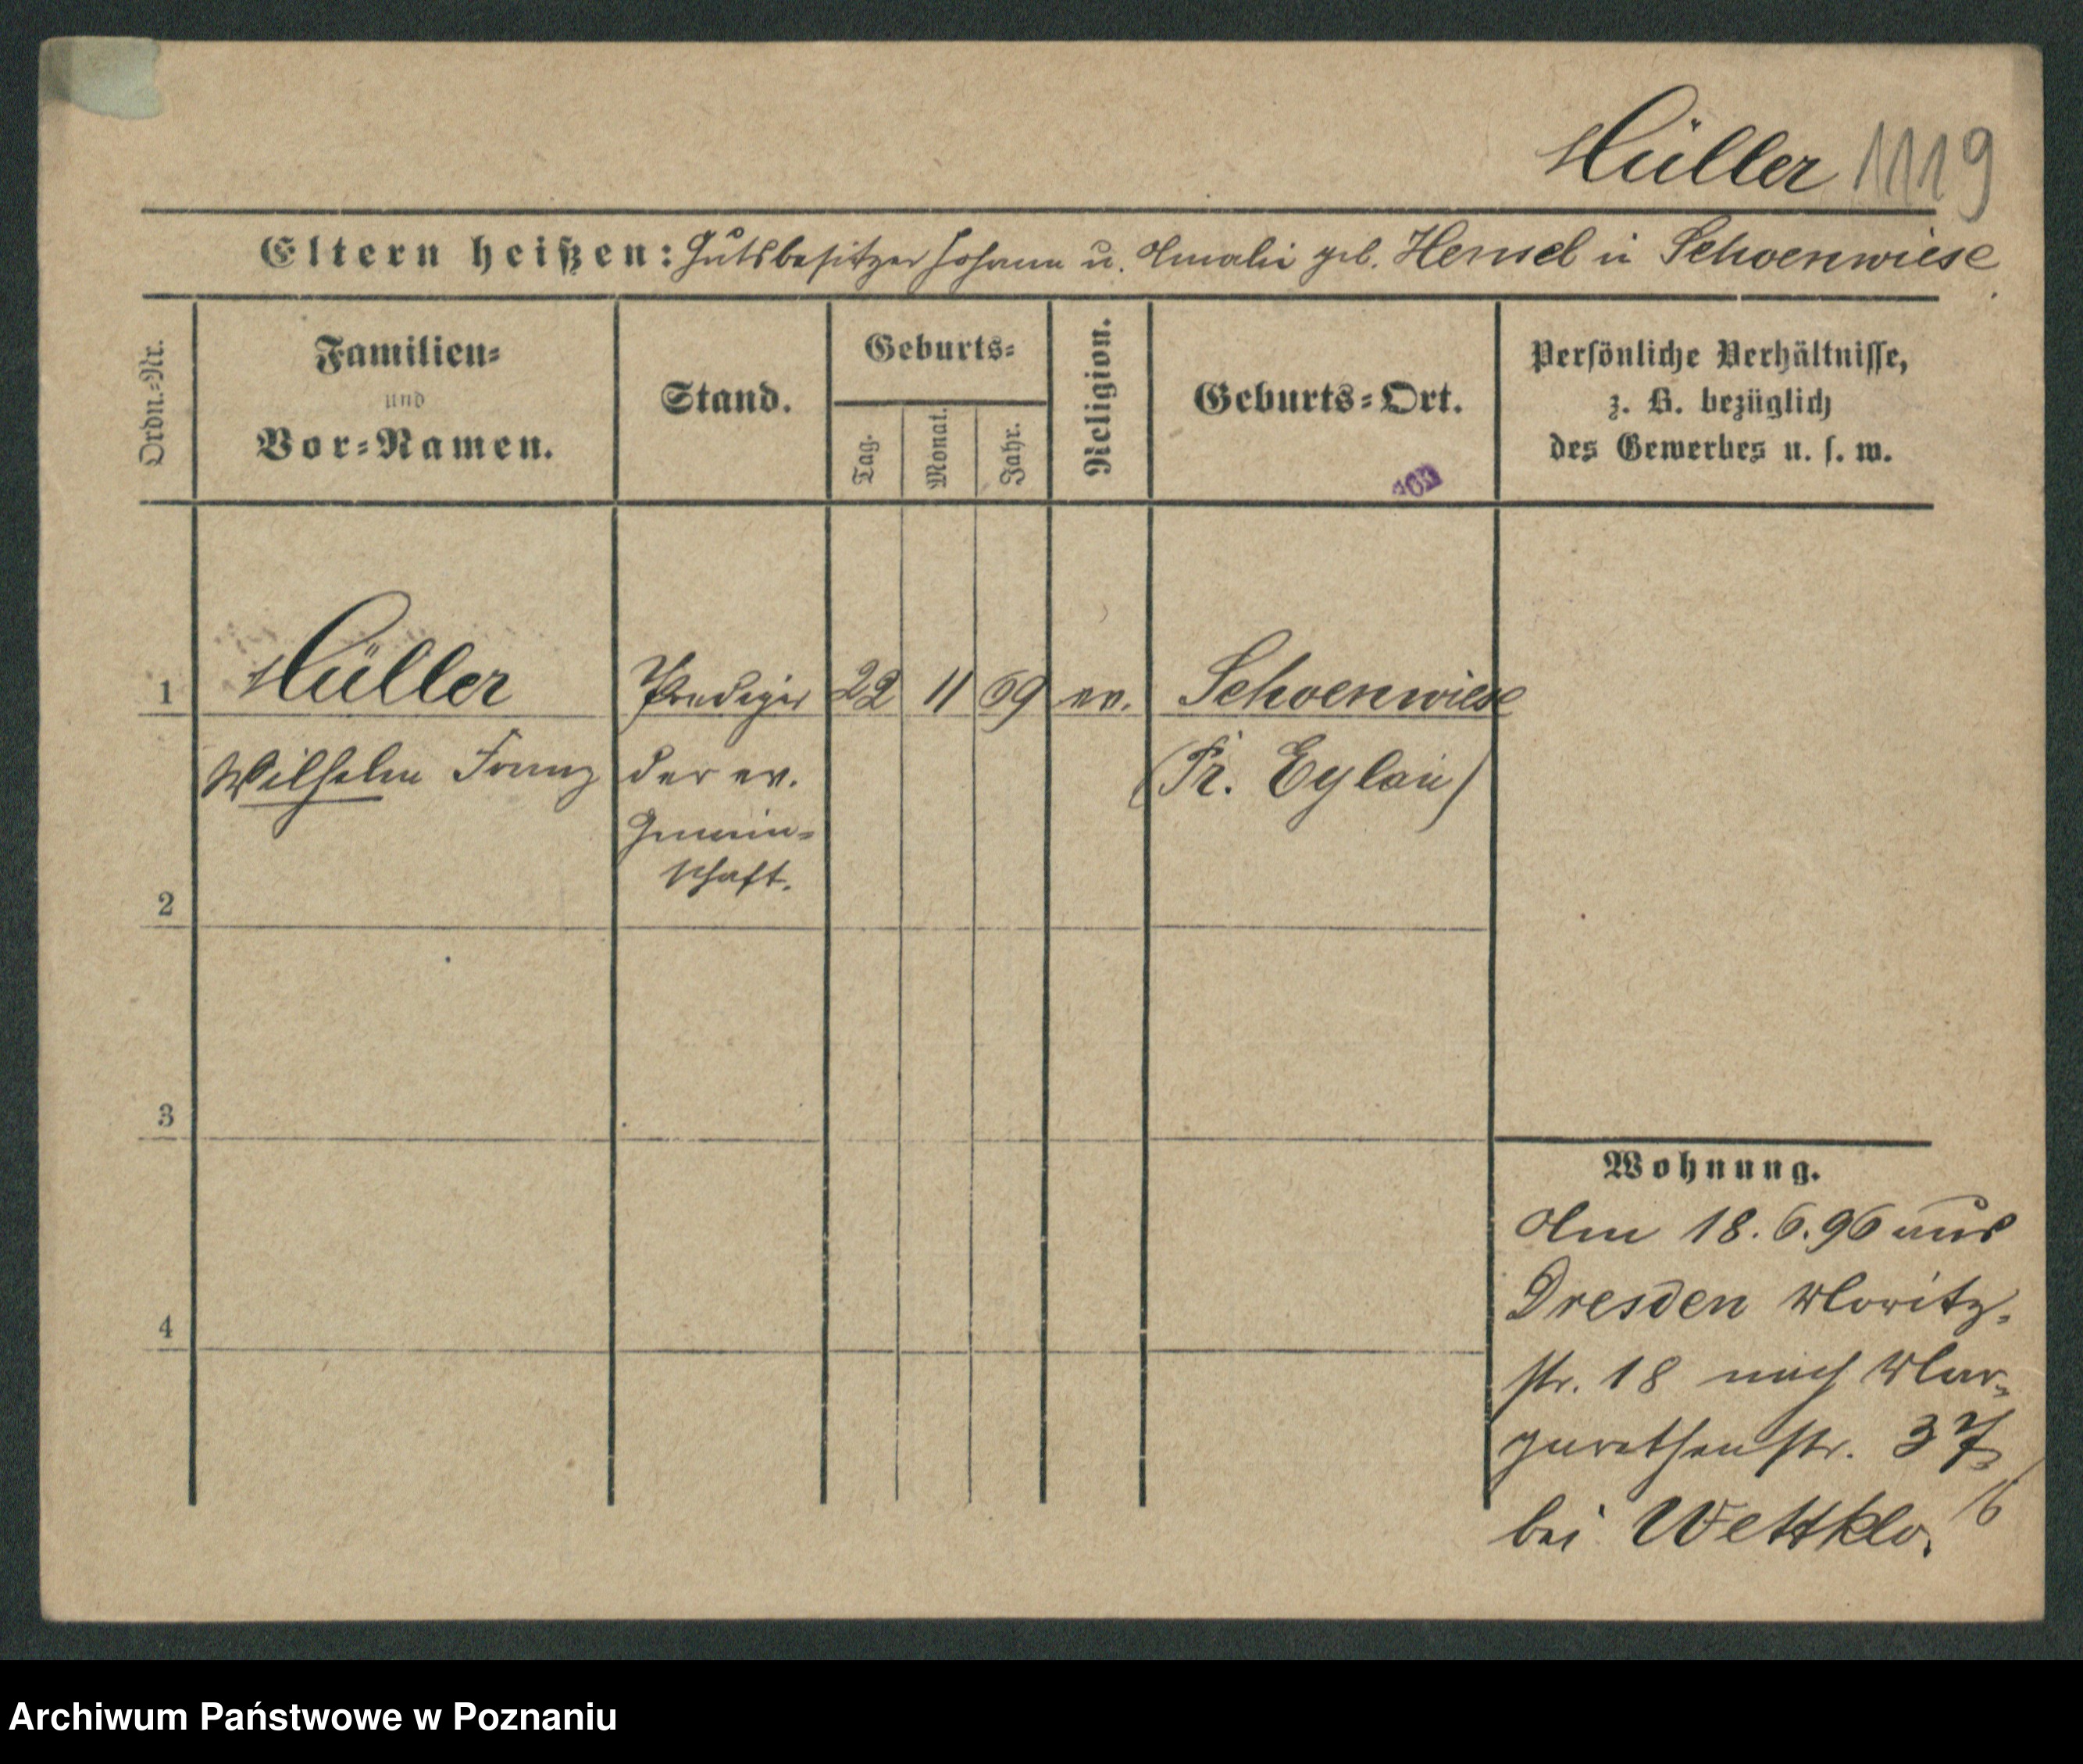 Müller 1119
Eltern heißen: Gutsbesitzer Johann u. Amalie geb. Hensel in Schoenwiese
Ordn.-Nr.
Familien-
und
Vor-Namen.
Stand.
Geburts-
Tag.
Monat.
Jahr.
Religion.
Geburts-Ort.
Persönliche Verhältnisse,
z. B. bezüglich
des Gewerbes u. s. w.
1 Müller Prediger 22 11 69 ev. Schoenwiese
Wilhelm Franz der ev. (Pr. Eylau)
Gemein-
schaft.
2
3
4
Wohnung.
Am 18.6.96 aus
Dresden Moritz-
str. 18 nach Mar-
garethenstr. 37
bei
Archiwum Państwowe w Poznaniu